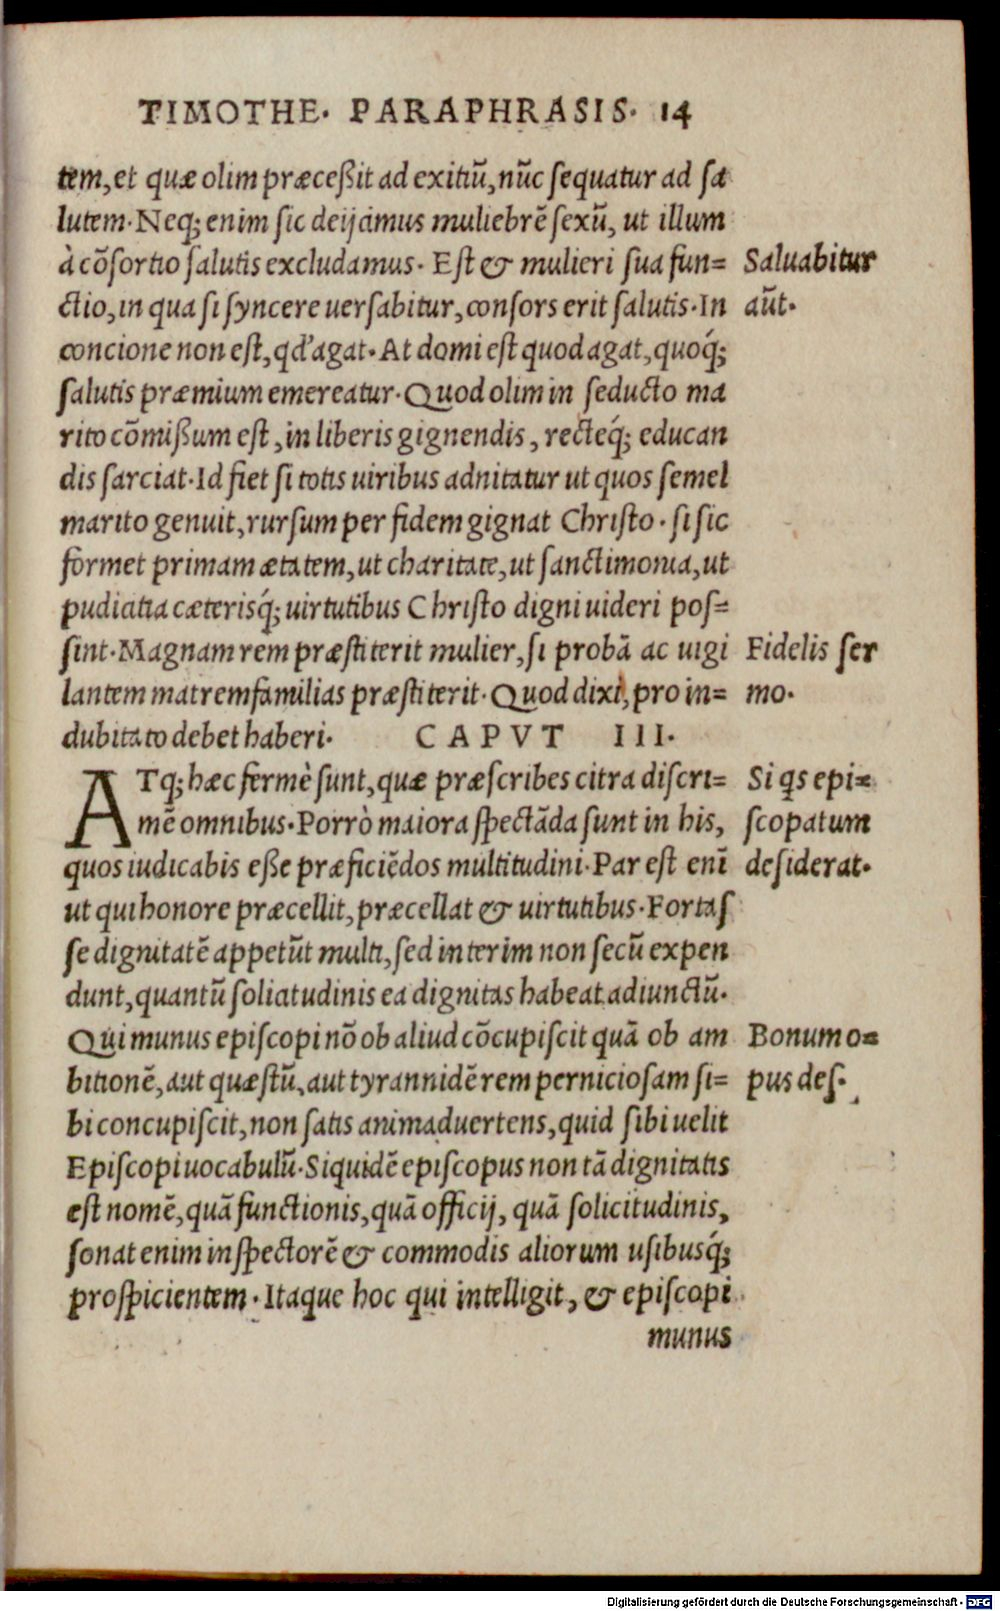 TIMOTHE. PARAPHRASIS. 14
tem, et quæ olim præceßit ad exitiũ, nũc sequatur ad sa
lutem. Neq; enim sic deijcimus muliebrẽ sexũ, ut illum
à cõsortio salutis excludamus. Est & mulieri sua fun=
Saluabitur
ctio, in qua si syncere uersabitur, consors erit salutis. In
aũt.
concione non est, qd' agat. At domi est quod agat, quoq́;
salutis præmium emereatur. Quod olim in seducto ma
rito cõmißum est, in liberis gignendis, recteq́; educan
dis sarciat. Id fiet si totis uiribus adnitatur ut quos semel
marito genuit, rursum per fidem gignat Christo. si sic
formet primam ætatem, ut charitate, ut sanctimonia, ut
pudicitia cæterisq́; uirtutibus Christo digni uideri pos=
sint. Magnam rem præstiterit mulier, si probã ac uigi
Fidelis ser
lantem matremfamilias præstiterit. Quod dixi, pro in=
mo.
dubitato debet haberi. CAPVT III.
ATq; hæc fermè sunt, quæ præscribes citra discri=
Si qs epi=
mẽ omnibus. Porrò maiora spectãda sunt in his,
scopatum
quos iudicabis eße præficiẽdos multitudini. Par est enĩ
desiderat.
ut qui honore præcellit, præcellat & uirtutibus. Fortas
se dignitatẽ appetũt multi, sed interim non secũ expen
dunt, quantũ solicitudinis ea dignitas habeat adiunctũ.
Qui munus episcopi nõ ob aliud cõcupiscit quã ob am
Bonum o=
bitionẽ, aut quæstũ, aut tyrannidẽ rem perniciosam si=
pus des.
bi concupiscit, non satis animaduertens, quid sibi uelit
Episcopi uocabulũ. Siquidẽ episcopus non tã dignitatis
est nomẽ, quã functionis, quã officij, quã solicitudinis,
sonat enim inspectorẽ & commodis aliorum usibusq́;
prospicientem. Itaque hoc qui intelligit, & episcopi
munus
Digitalisierung gefördert durch die Deutsche Forschungsgemeinschaft - DFG